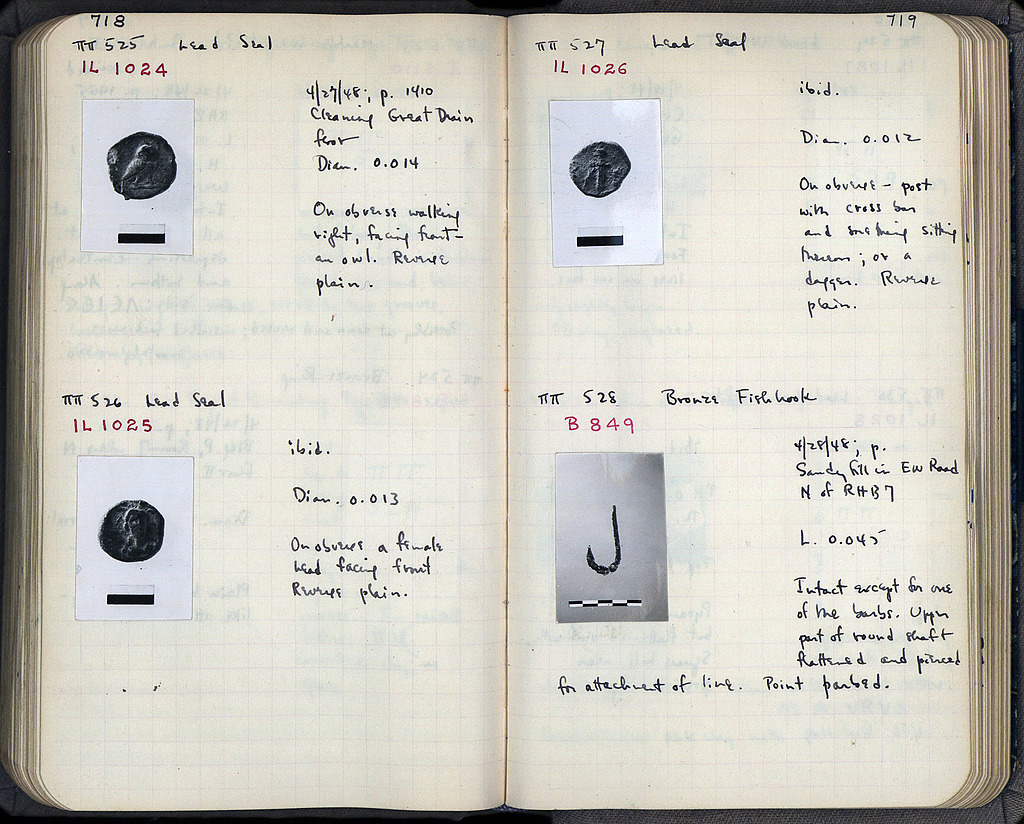 718
ΠΠ 525 Lead Seal
IL 1024
4/27/48; p. 1410
Cleaning Great Drain
Diam. 0.014
On obverse walking
right, facing front -
an owl. Reverse
plain.
ΠΠ 526 Lead Seal
IL 1025
ibid.
Diam. 0.013
On obverse a female
head facing front
Reverse plain.
719
ΠΠ 527 Lead Seal
IL 1026
ibid.
Diam. 0.012
On obverse - post
with cross bar
and something sitting
thereon; or a
dagger. Reverse
plain.
ΠΠ 528 Bronze Fishhook
B 849
4/28/48; p.
Sandy fill in EW Road
N of RHB7
L. 0.045
Intact except for one
of the barbs. Upper
part of round shaft
flattened and pierced
for attachment of line. Point barbed.